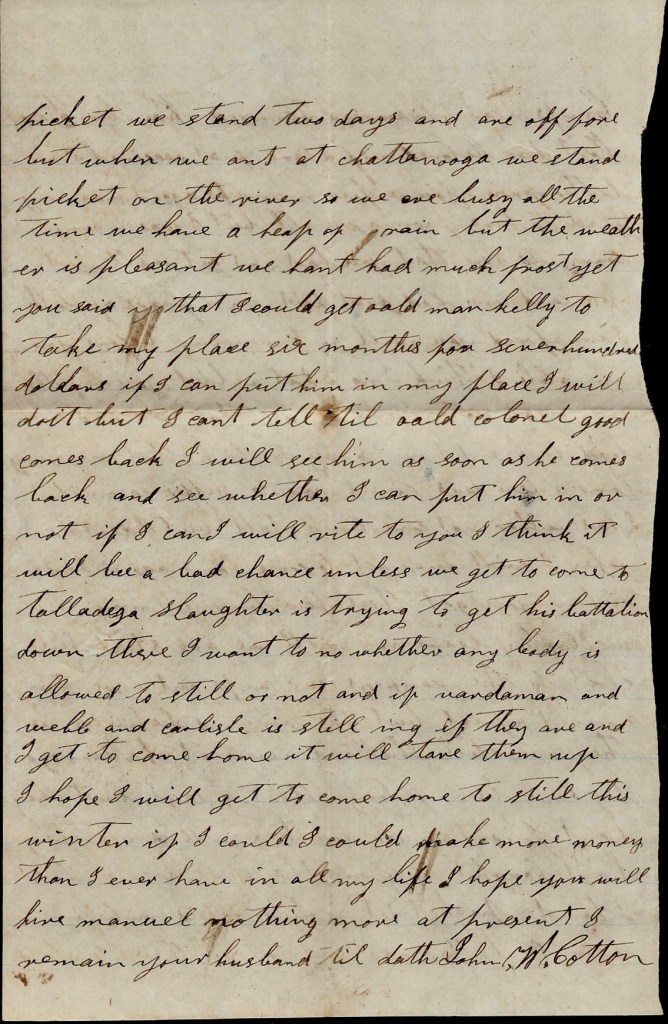 picket we stand two days and are off fore
but when we ant at chattanooga we stand
picket on the river so we are busy all the
time we have a heap of rain but the weath
er is pleasant we hant had much frost yet
you said that I could get oald man kelly to
take my place six months for seven hundred
doldars if I can put him in my place I will
doit but I cant tell til oald colonel good
comes back I will see him as soon as he comes
back and see whether I can put him in or
not if I can I will rite to you I think it
will bee a bad chance unless we get to come to
talladega slaughter is trying to get his battalion
down there I want to no whether any body is
allowed to still or not and if vardaman and
webb and carlisle is still ing if they are and
I get to come home it will tare them up
I hope I will get to come home to still this
winter if I could I could make more money
than I ever have in all my life I hope you will
hire manuel nothing more at present I
remain your husband til dath John W. Cotton